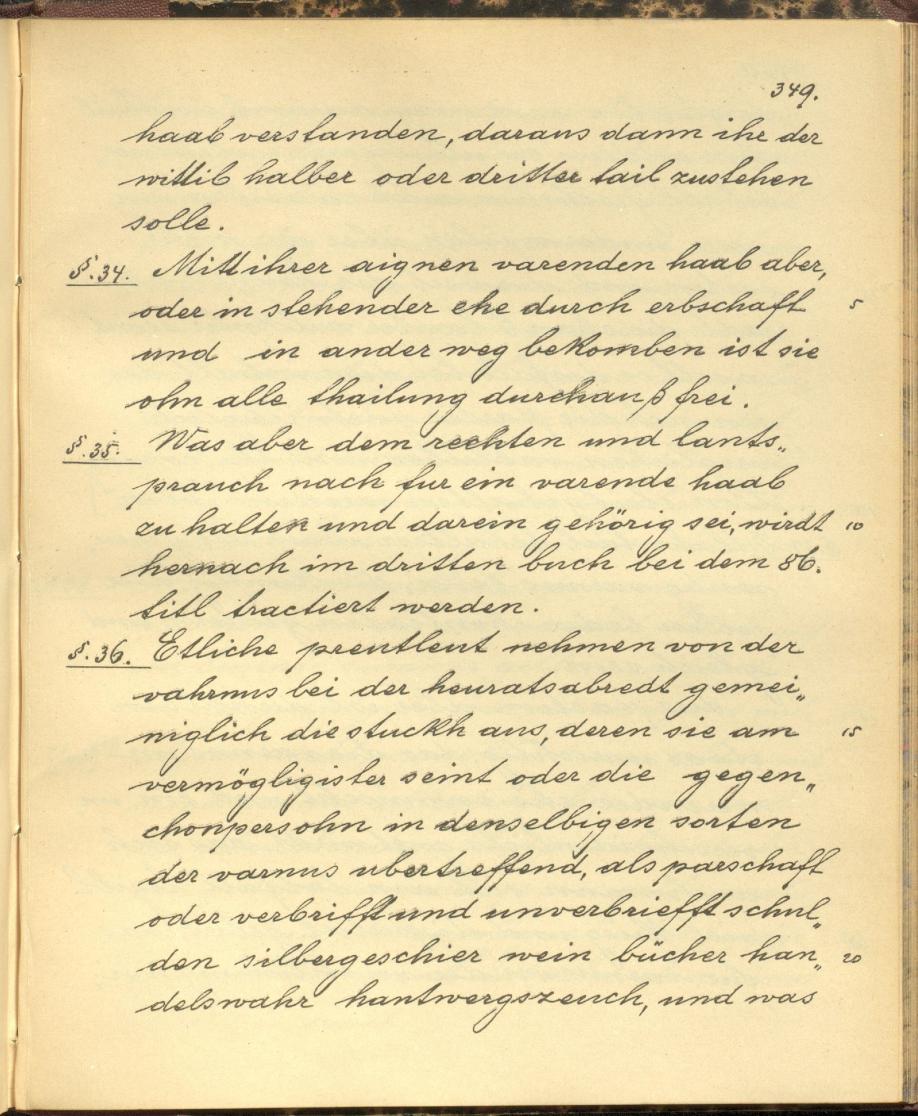 349.
haab verstanden, daraus dann ihr der
wittib halber oder dritter tail zustehen
solle.
§. 34. Mitt ihrer aignen varenden haab aber,
oder in stehender ehe durch erbschaft 5
und in ander weg bekomben ist sie
ohn alle thailung durchauß frei.
§. 35. Was aber dem rechten und lants„
prauch nach fur ein varende haab
zu halten und darein gehörig sei, wirdt 10
hernach im dritten buch bei dem 86.
titl tractiert werden.
§. 36. Etliche preutleut nehmen von der
vahrnus bei der heuratsabredt gemei„
niglich die stuckh aus, deren sie am 15
vermögligister seint oder die gegen„
chonpersohn in denselbigen sorten
der varnus ubertreffend, als parschaft
oder verbrifft und unverbriefft schul„
den silbergeschier wein bücher han„ 20
delswahr hantwergszeuch, und was